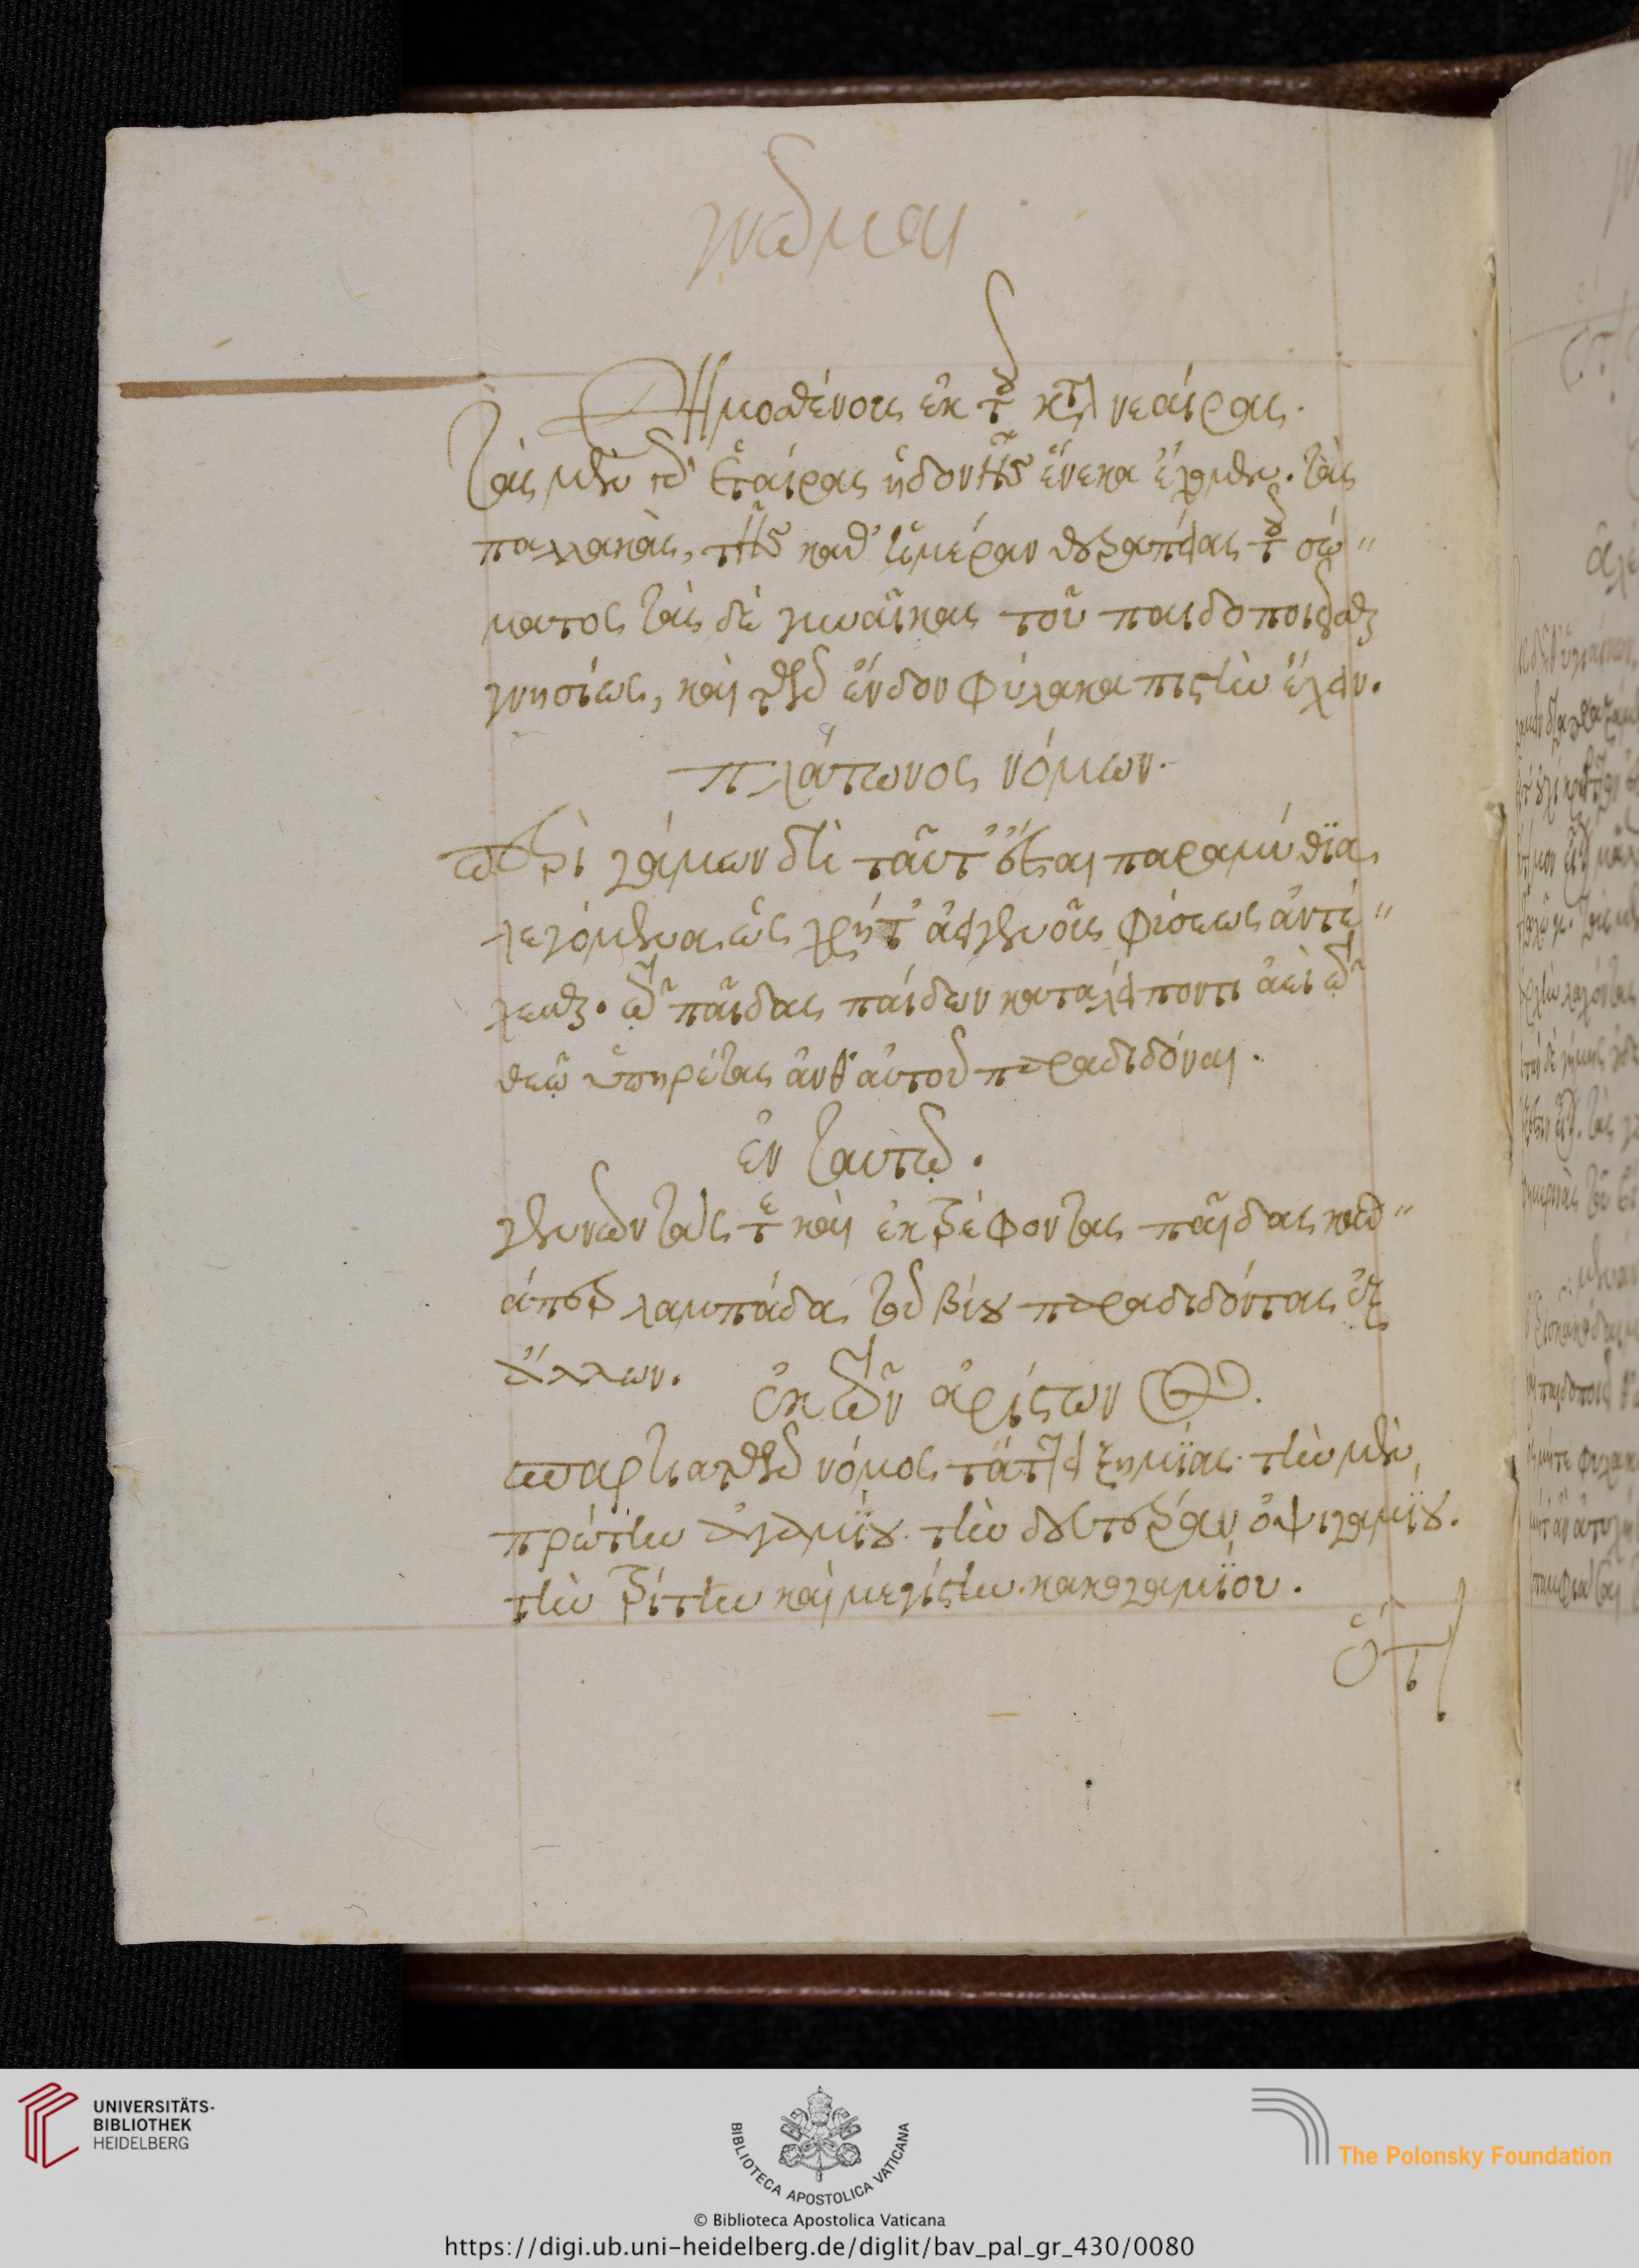 γνῶμαι
Δημοσθένους ἐκ τοῦ κατὰ νεαίρας.
Τὰς μὲν γὸ ἑταίρας ἡδονῆς ἕνεκα ἔχομεν. τὰς
παλλακὰς, τῆς καθ' ἡμέραν θεραπείας τοῦ σώ"
ματος τὰς δὲ γυναῖκας τοῦ παιδοποιεῖσθαι
γνησίως, καὶ τῶν ἔνδον φύλακα πιστὴν ἔχειν.
πλάτωνος νόμων.
περὶ γάμων δὴ ταῦτ' ἔσται παραμύθια
λεγόμενα, ὡς χρὴ τ ἀειγενοῦς φύσεως ἀντέ"
χεσθαι. τῷ παῖδας παίδων καταλείποντι ἀεὶ τῷ
θεῷ ὑπηρέτας ἀνθ' αὑτοῦ παραδιδόναι.
ἐν ταυτῷ.
γεννῶντας τε καὶ ἐκτρέφοντας παῖδας καθ"
άπερ λαμπάδα τοῦ βίου παραδιδόντας ἐξ
ἄλλων.
ἐκ τῶν ἀρίστων
σπαρτιατῶν νόμος τάττει ζημίας. τὴν μὲν
πρώτην ἀγαμίου. τὴν δευτέραν ὀψιγαμίου.
τὴν τρίτην καὶ μεγίστην κακογαμίου.
ὅτι
UNIVERSITÄTS-
BIBLIOTHEK
HEIDELBERG
BIBLIOTECA APOSTOLICA VATICANA
The Polonsky Foundation
© Biblioteca Apostolica Vaticana
https://digi.ub.uni-heidelberg.de/diglit/bav_pal_gr_430/0080